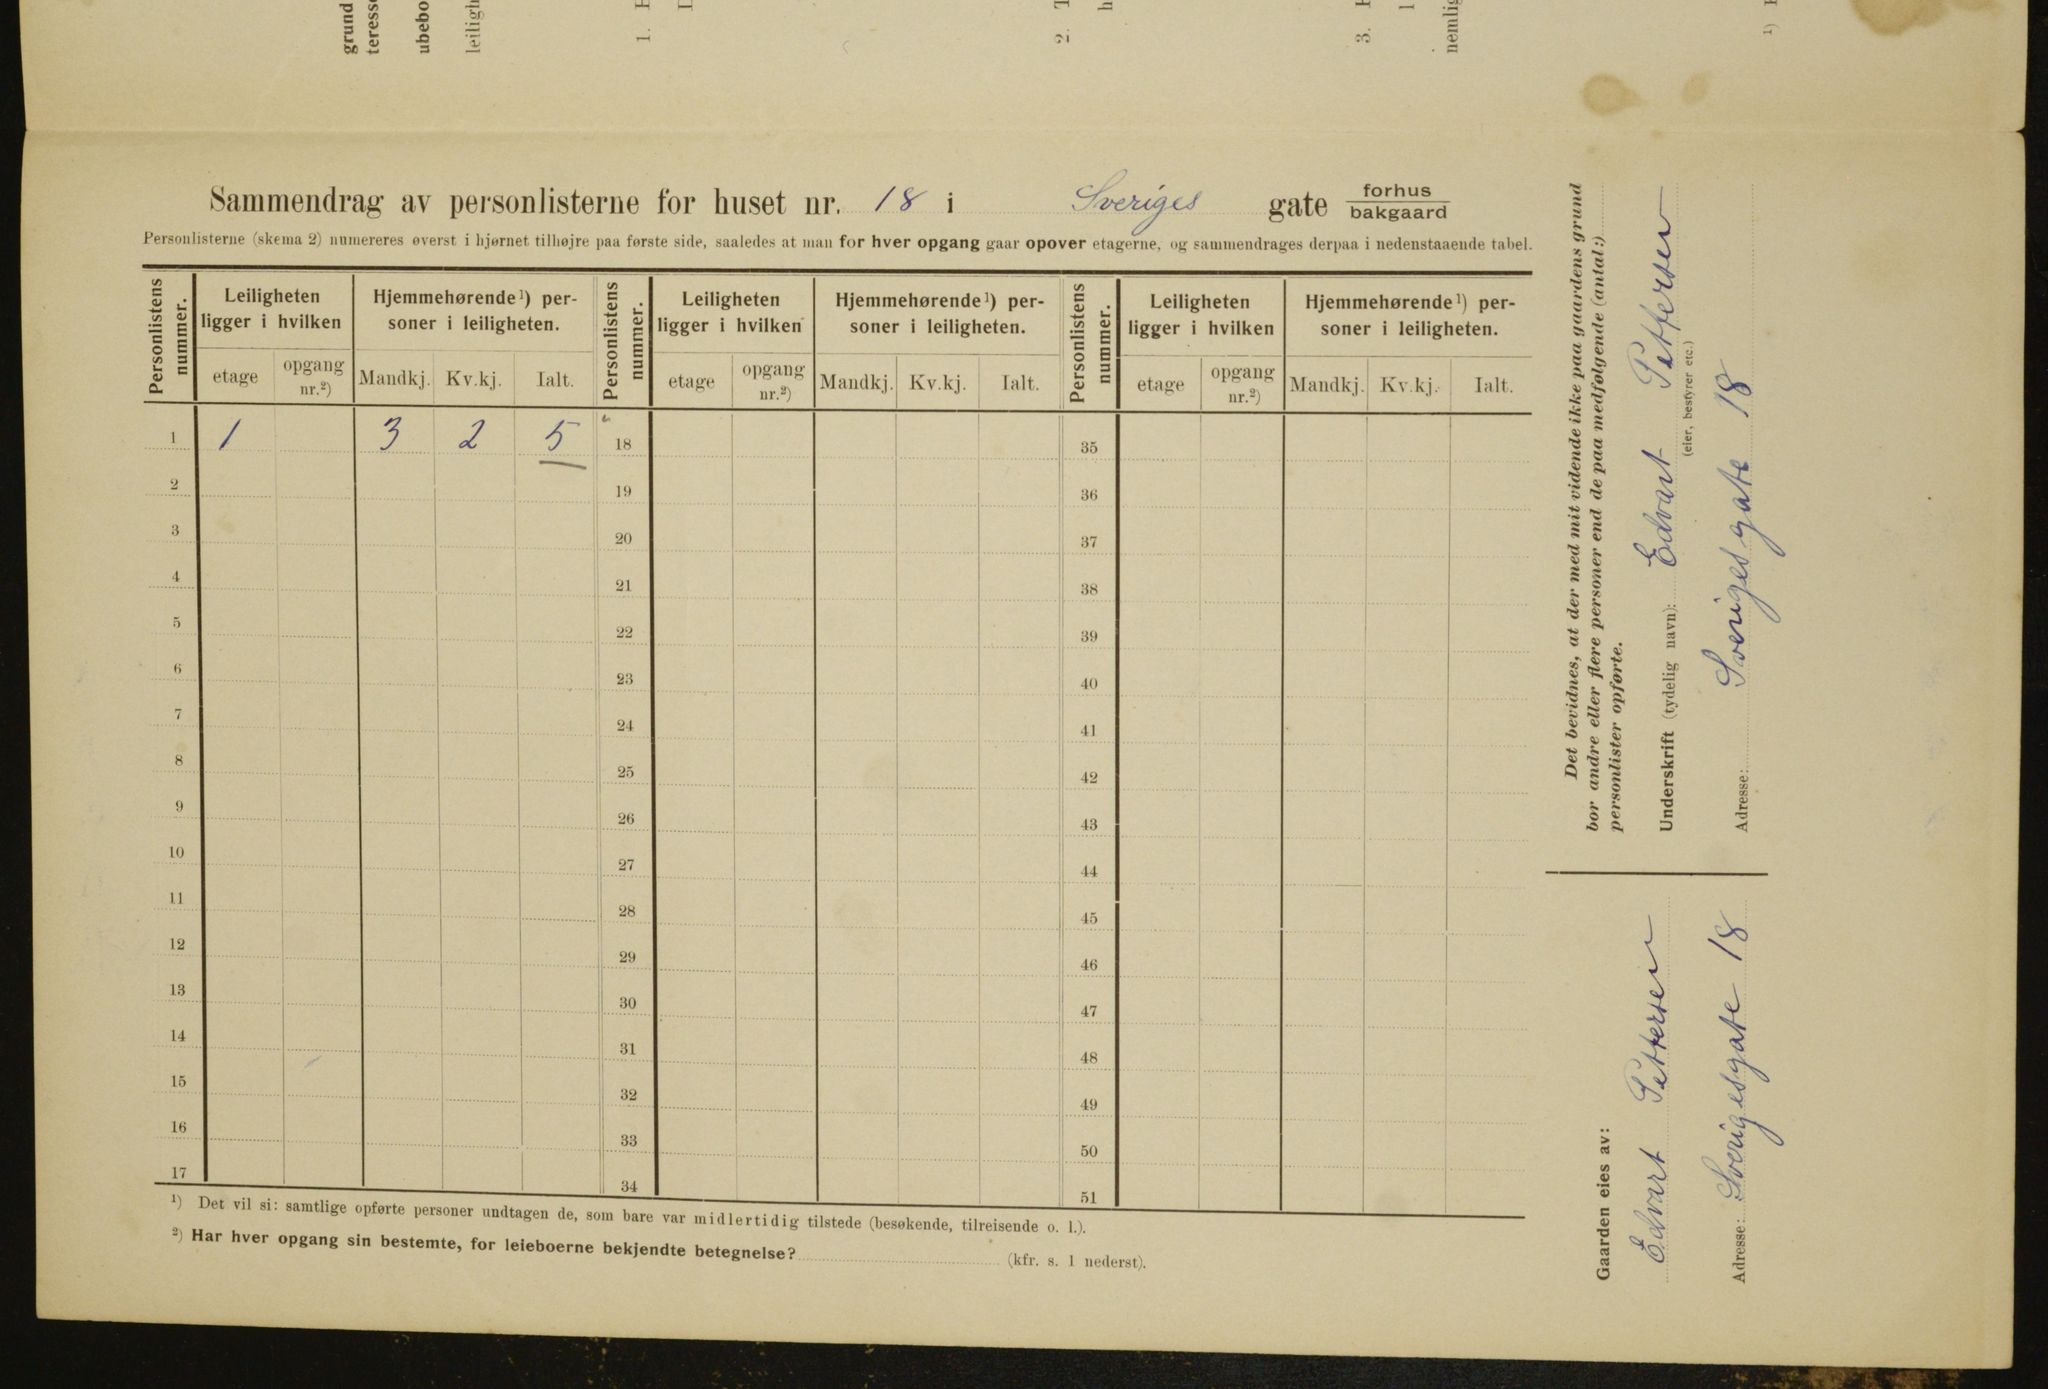 grund
teresse
ubebo
leiligh
1.
2.
3.
nemlig
1)
Sammendrag av personlisterne for huset nr. 18 i Sveriges gate forhus
bakgaard
Personlisterne (skema 2) numereres øverst i hjørnet tilhøjre paa første side, saaledes at man for hver opgang gaar opover etagerne, og sammendrages derpaa i nedenstaaende tabel.
Personlistens nummer. Leiligheten ligger i hvilken Hjemmehørende¹) personer i leiligheten. Personlistens nummer. Leiligheten ligger i hvilken Hjemmehørende¹) personer i leiligheten. Personlistens nummer. Leiligheten ligger i hvilken Hjemmehørende¹) personer i leiligheten.
etage opgang nr.²) Mandkj. Kv.kj. Ialt. etage opgang nr.²) Mandkj. Kv.kj. Ialt. etage opgang nr.²) Mandkj. Kv.kj. Ialt.
1 1 3 2 5 18 35
2 19 36
3 20 37
4 21 38
5 22 39
6 23 40
7 24 41
8 25 42
9 26 43
10 27 44
11 28 45
12 29 46
13 30 47
14 31 48
15 32 49
16 33 50
17 34 51
¹) Det vil si: samtlige opførte personer undtagen de, som bare var midlertidig tilstede (besøkende, tilreisende o. l.).
²) Har hver opgang sin bestemte, for leieboerne bekjendte betegnelse? (kfr. s. 1 nederst).
Det bevidnes, at der med mit vidende ikke paa gaardens grund
bor andre eller flere personer end de paa medfølgende (antal:)
personlister opførte.
Underskrift (tydelig navn): Edvart Pettersen
(eier, bestyrer etc.)
Adresse: Sverigesgate 18
Gaarden eies av:
Edvart Pettersen
Adresse: Sverigesgate 18